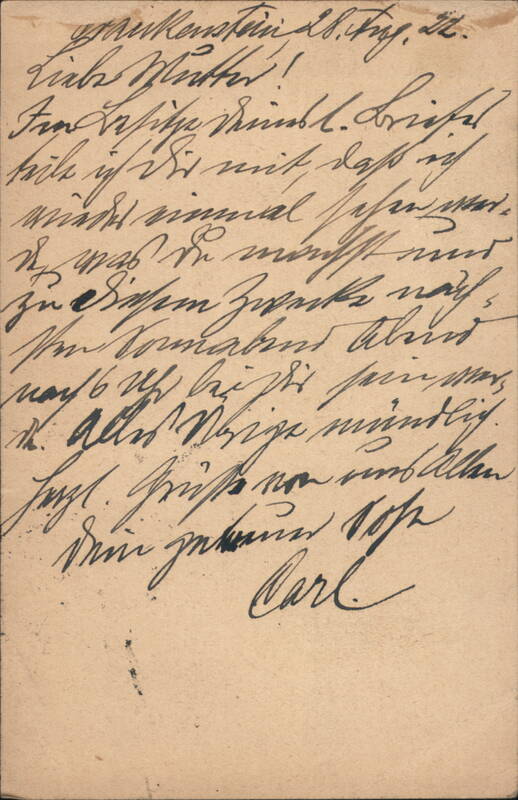 Frankenstein, 28. Aug. 22.
Liebe Mutter!
Im Besitze deines l. Briefes
teile ich Dir mit, daß ich
wieder einmal sehen wer-
de, was Du machst und
zu diesem Zwecke näch-
sten Sonnabend Abend
nach 6 Uhr bei Dir sein wer-
de. Alles Übrige mündlich.
Herzl. Grüße von uns Allen
Dein getreuer Sohn
Carl.